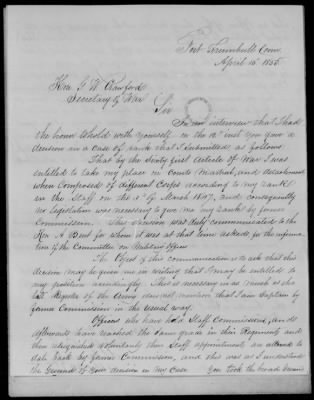 Fort Trumbull Conn
April 16th 1850.
Hon. G. W. Crawford
Secretary of War
Sir
In an interview that I had
the honor to hold with yourself on the 12th inst you gave a
decision in a case of rank that I submitted, as follows
That by the Sixty first Article of War I was
entitled to take my place in Courts Martial, and detachments
when composed of different Corps according to my rank
in the Staff on the 3d of March 1847, and consequently
no legislation was necessary to give me my rank by former
Commission. This decision was duly communicated to the
Hon. Bent for whom it was at that time asked for the informa
tion of the Committee on Military Affairs
The Object of this communication is to ask that this
decision may be given me in writing that I may be entitled to
my position accordingly. This is necessary in as much as the
last Register of the Army does not mention that I am Captain by
former Commission in the usual way.
Officers who have held Staff Commissions, and
afterwards have reached the same grade in their Regiments and
then relinquished voluntarily their Staff appointments are allowed to
date back by former Commission, and this was as I understand
the Ground of your decision in my case. You took the broad